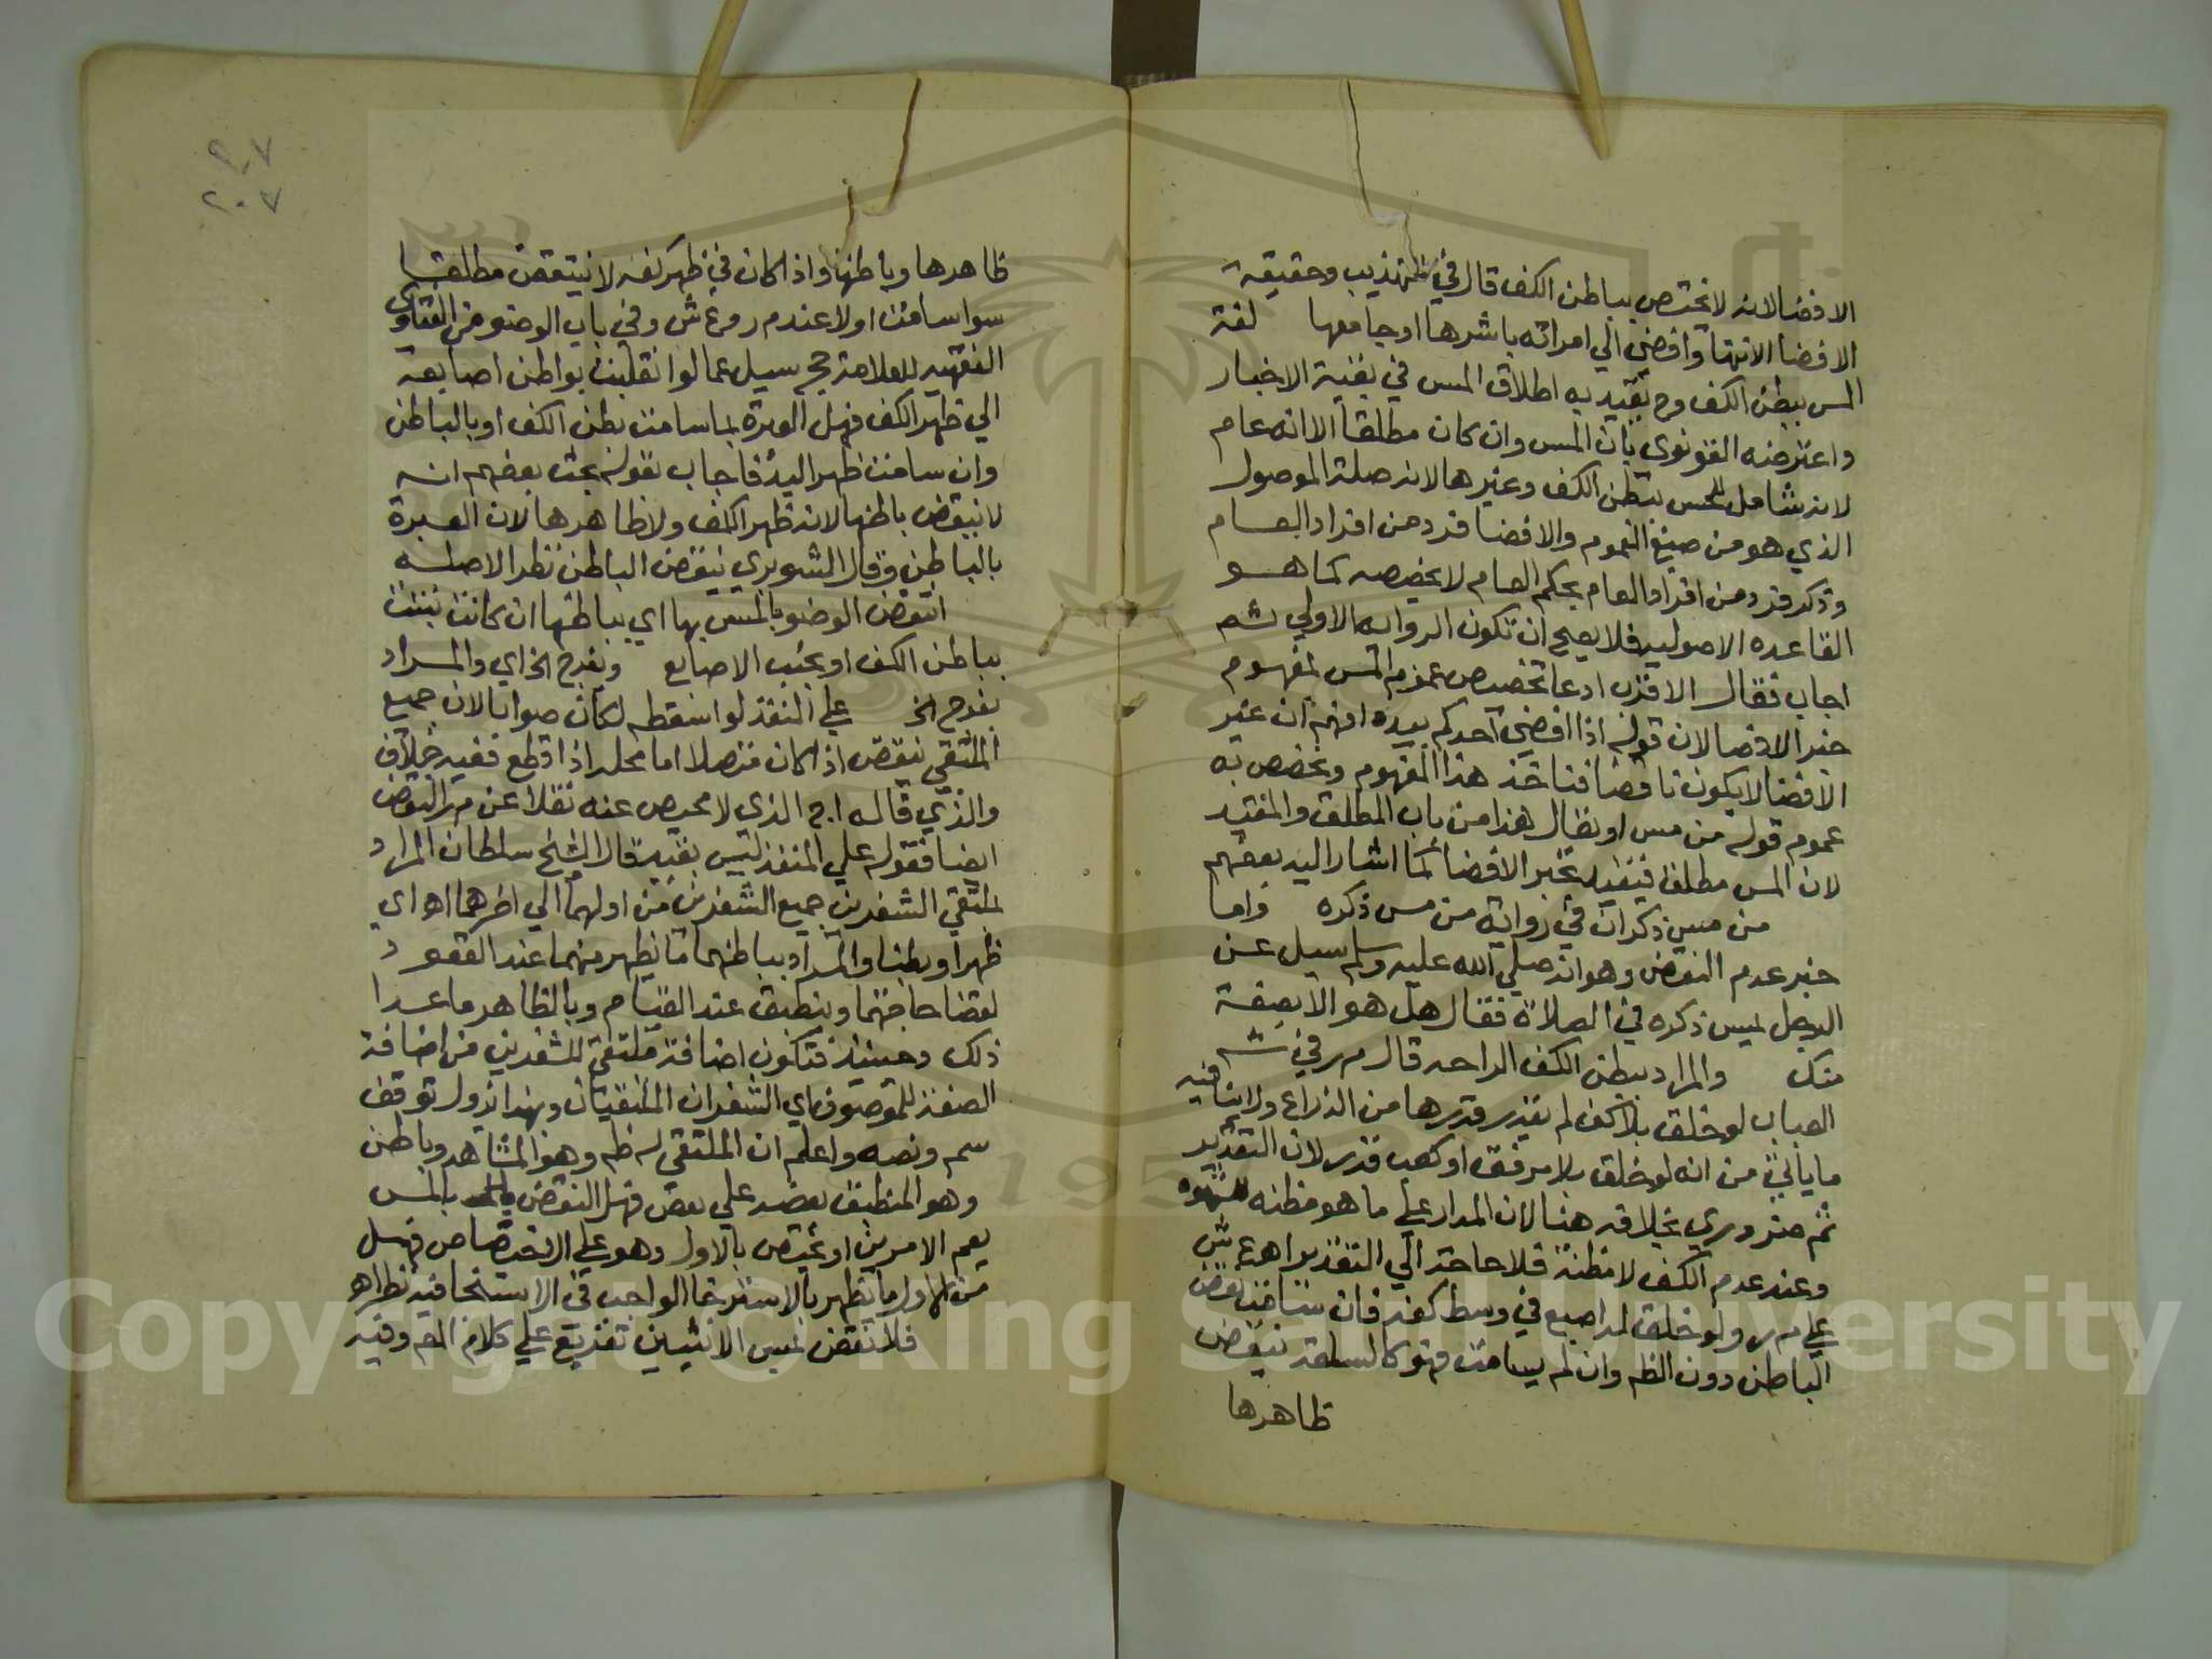 الافضا لانه لا يختص بباطن الكف قال في التهذيب وحقيقة
الافضا الانتها وافضي الي امراته باشرها او جامعها لغة
المس ببطن الكف وح يقيد به اطلاق المس في بقية الاخبار
واعترضه القونوي بان المس وان كان مطلقا الا انه عام
لانه شامل للمس ببطن الكف وغيرها لانه صلة الموصول
الذي هو من صيغ العموم والافضا فرد من افراد العام
وذكر فرد من افراد العام بحكم العام لا يخصصه كما هو
القاعده الاصوليه فلا يصح ان تكون الروايه الاولي ثم
اجاب فقال الاقرب ادعا تخصيص عموم المس لمفهوم
خبر الافضا لان قوله اذا افضي احدكم بيده افهم ان غير
الافضا لا يكون ناقضا فناخذ هذا المفهوم ونخصص به
عموم قوله من مس او يقال هذا من باب المطلق والمقيد
لان المس مطلقا فيقيد بخبر الافضا كما اشار اليه بعضهم
من مس ذكرا في رواية من مس ذكره واما
خبر عدم النقض وهو انه صلي الله عليه وسلم سيل عن
الرجل يمس ذكره في الصلاة فقال هل هو الا بضعة
منك والمراد ببطن الكف الراحه قال م ر في ش
العباب لو خلق بلا كف لم يقدر قدرها من الذراع ولا ينافيه
ما ياتي من انه لو خلق بلا مرفق او كعب قدر لان التقدير
ثم ضروري بخلافه هنا لان المدار علي ما هو مظنه للشهوه
وعند عدم الكف لا مظنة فلا حاجة الي التقدير اهـ ع ش
علي م ر ولو خلق له اصبع في وسط كفه فان سامت نقض
الباطن دون الظهر وان لم يسامت فهو كالسلعة ينقض
ظاهرها
٢٠٧
٢٠٧
ظاهرها وباطنها واذا كان في ظهر كفه لا ينتقض مطلقا
سوا سامت اولا عند م ر و ع ش وفي باب الوضو من الفتاوي
الفقهيه للعلامة حج سيل عما لو انقلبت بواطن اصابعه
الي ظهر الكف فهل العبرة بما سامت بطن الكف او بالباطن
وان سامت ظهر اليد فاجاب بقوله بحث بعضهم انه
لا ينقض باطنها لانه ظهر الكف ولا ظاهرها لان العبرة
بالباطن وقال الشوبري ينقض الباطن نظرا لاصله
انتقض الوضو بالمس بها اي بباطنها ان كانت نبتت
بباطن الكف او بجنب الاصابع وبفرج الخ اي والمراد
بفرج الخ علي المنفذ لو اسقطه لكان صوابا لان جميع
الملتقي ينقض اذا كان متصلا اما محله اذا قطع ففيه خلاف
والذي قاله ا ج الذي لا محيص عنه نقلا عن م ر النقض
ايضا فقوله علي المنفذ ليس بقيد قال الشيخ سلطان المراد
بملتقي الشفرين جميع الشفرين من اولهما الي اخرهما اهـ اي
ظهرا وبطنا والمراد بباطنهما ما يظهر منهما عند القعود
لقضا حاجتهما وينطبق عند القيام وبالظاهر ما عدا
ذلك وحينئذ فتكون اضافة ملتقي للشفرين من اضافة
الصفة للموصوف اي الشفران الملتقيان وبهذا يزول توقف
سم ونصه واعلم ان الملتقي له ظهر وهو المشاهد وباطن
وهو المنطبق بعضه علي بعض فهل النقض بالمس
يعم الامرين او يختص بالاول وهو علي الاختصاص فهل
من الاول ما يظهر بالاسترخا الواجب في الاستنجا فيه نظر اهـ
فلا نقض بمس الانثيين تفريع علي كلام المم وفيه